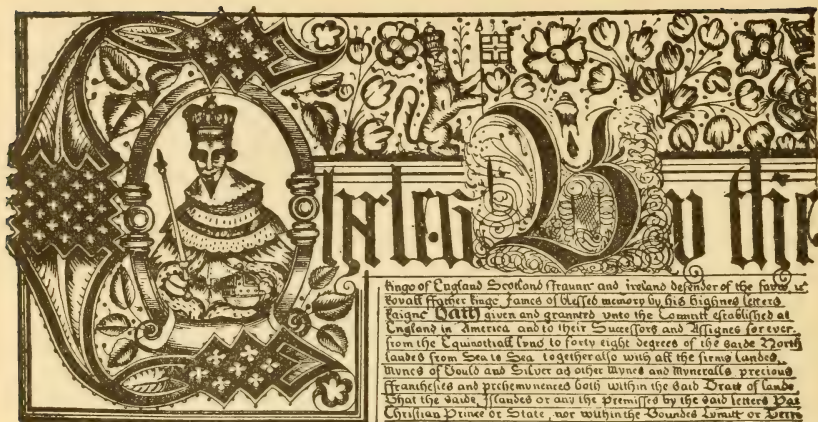 Charles By the
Kinge of England Scotland ffraunce and ireland defender of the fayth, &c
Royall ffather kinge James of blessed memory by his highnes letters
Raigne Hath given and graunted vnto the Councill established at
England in America and to their Successors and Assignes for ever.
from the Equinoctiall lyne to forty eight degrees of the saide North
landes from Sea to Sea together also with all the firme landes,
Mynes of Gould and Silver as other Mynes and Myneralls precious
ffranchesies and prehemynences both within the said Tract of lande
That the saide Islandes or any the premisses by the said letters Pat
Christian Prince or State, nor within the Boundes Lymitt or